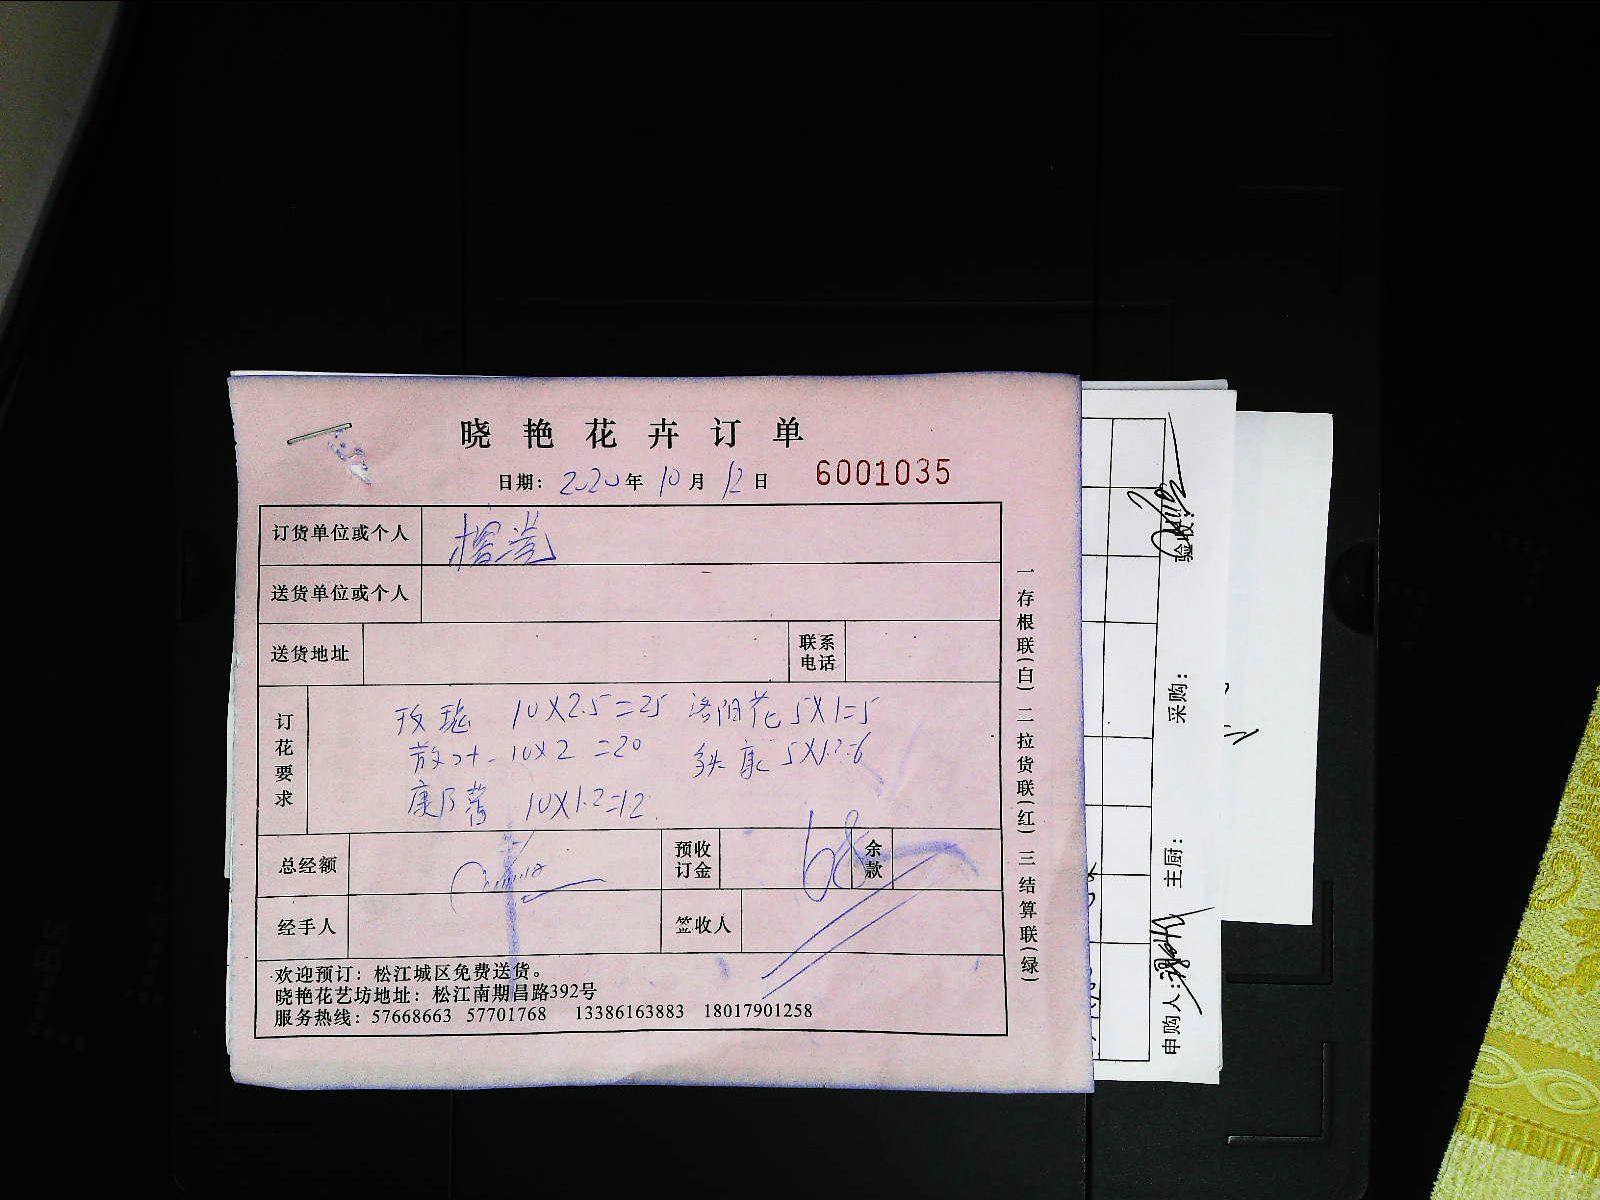 晓艳花卉订单
日期：2020年10月12日 6001035
订货单位或个人
送货单位或个人
送货地址 联系电话
订花要求
玫瑰 10X2.5=25 洛阳花 5X1=5
散叶 10X2=20 多头康 5X1.2=6
康乃馨 10X1.2=12
总经额 预收订金 68 余款
经手人 签收人
欢迎预订：松江城区免费送货。
晓艳花艺坊地址：松江南期昌路392号
服务热线：57668663 57701768 13386163883 18017901258
一存根联(白) 二拉货联(红) 三结算联(绿)
申购人： 主厨： 采购： 验收：